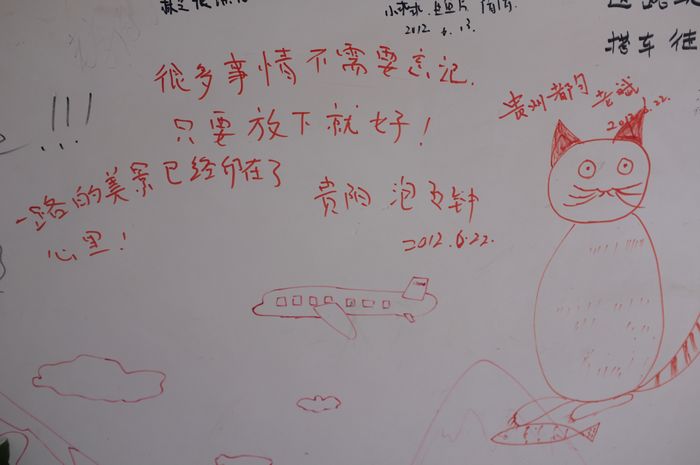 2012.6.13
搭车往
很多事情不需要忘记.
只要放下就好!
一路的美景已经印在了
心里!
贵阳 泡
2012.6.22.
贵州都匀
!!!